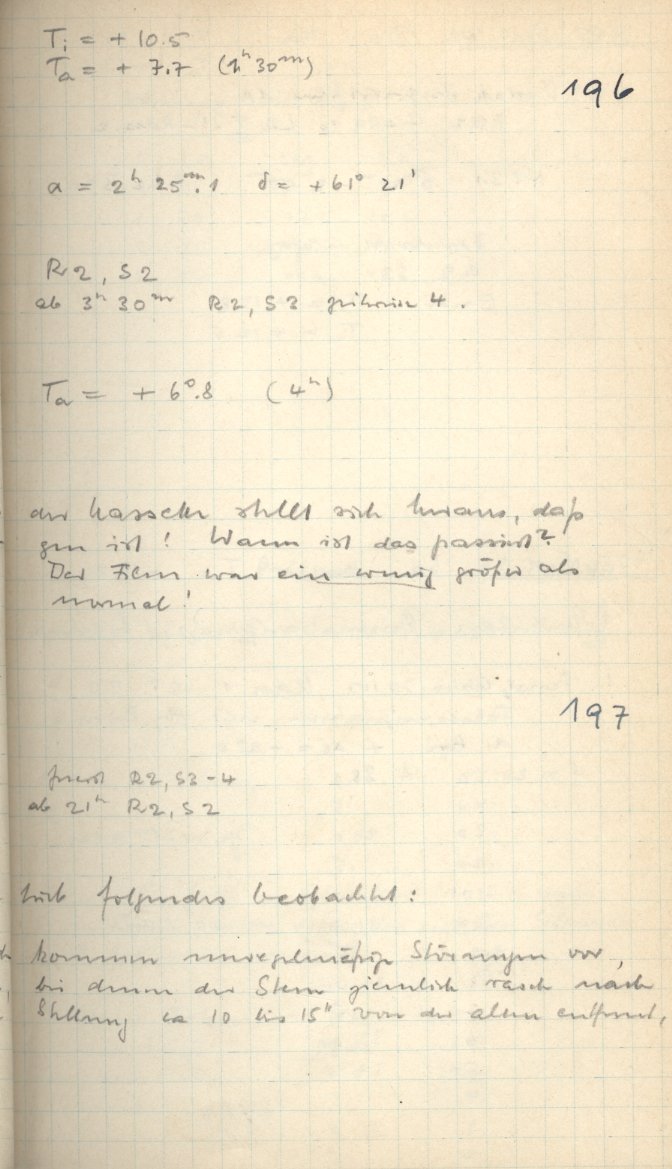 Ti = + 10.5
Ta = + 7.7 (1h 30m)
196
α = 2h 25m.1 δ = +61° 21'
R2, S2
ab 3h 30m R2, S3 zeitweise 4.
Ta = + 6°.8 (4h)
der Kassette stellt sich heraus, daß
gen ist! Wann ist das passiert?
Der Film war ein wenig größer als
normal!
197
zuerst R2, S3-4
ab 21h R2, S2
folgendes beobachtet:
kommen unregelmäßige Störungen vor,
bei denen der Stern ziemlich rasch nach
Stellung ca 10 bis 15" von der alten entfernt,